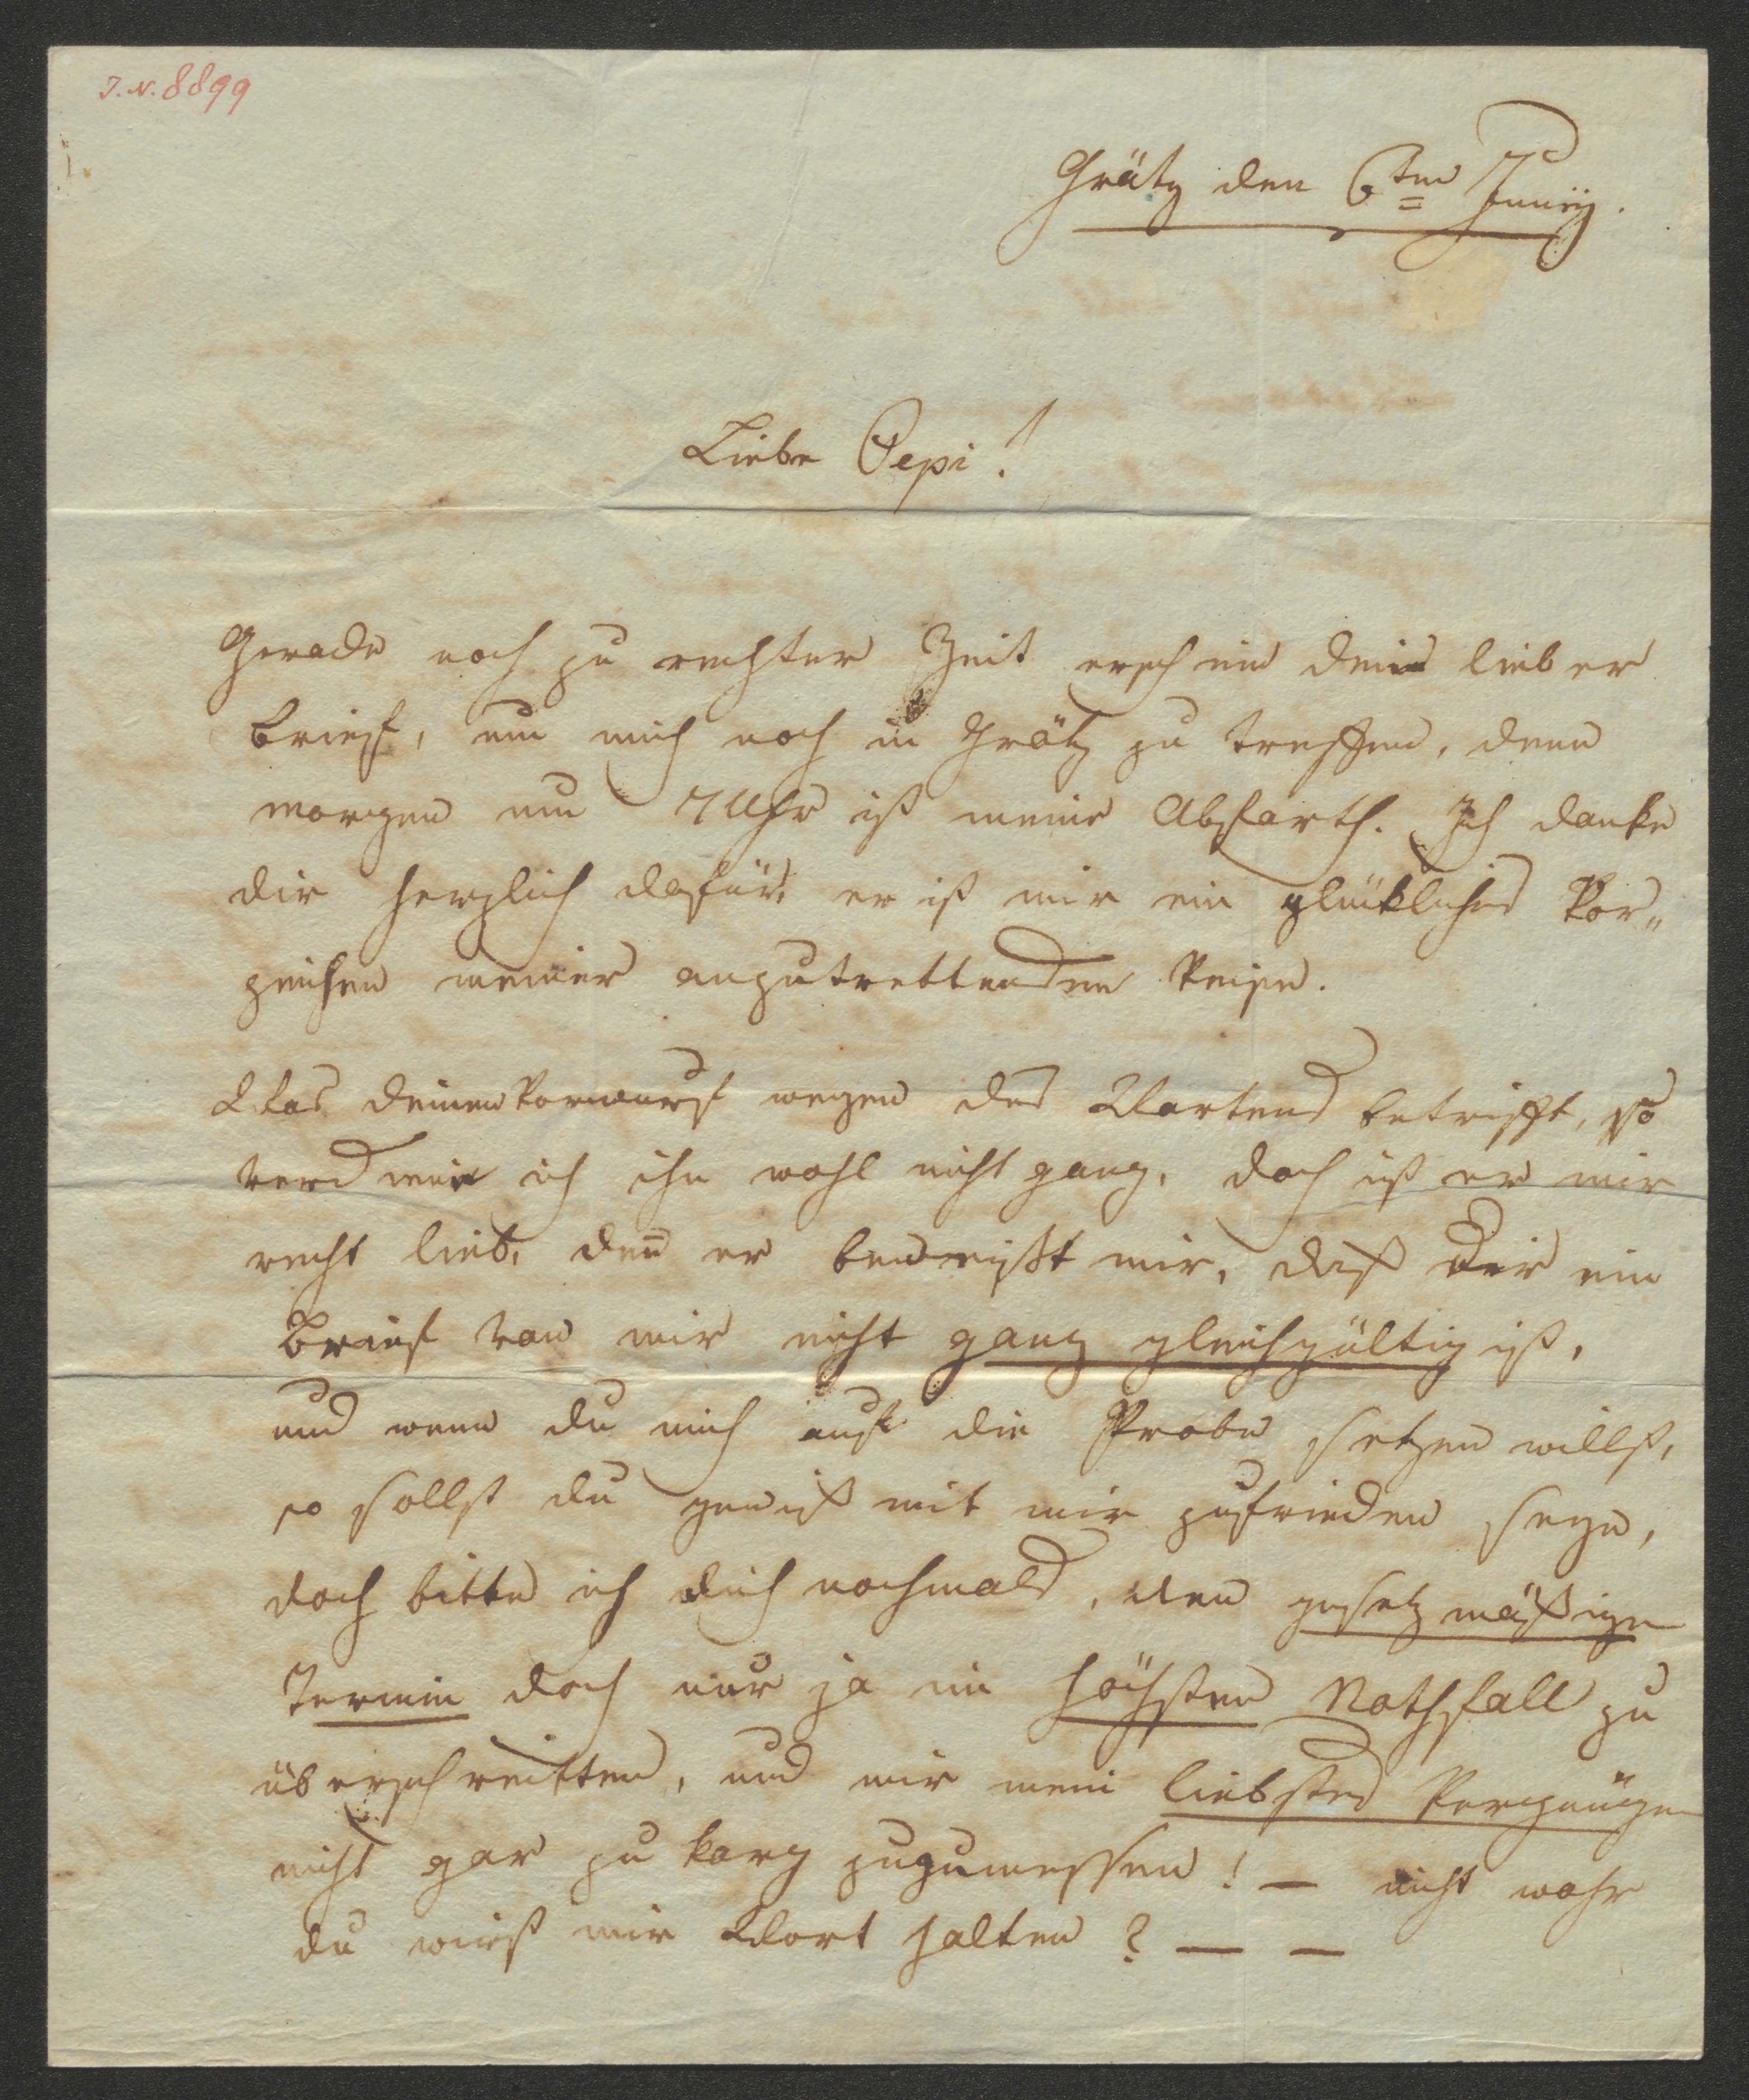 I. N. 8899
Grätz den 6ten Junÿ.
Liebe Pepi!
Gerade noch zu rechter Zeit erschien dein lieber
Brief, um mich noch in Grätz zu treffen, denn
morgen um 7 Uhr ist meine Abfarth. Ich danke
dir herzlich dafür, er ist mir ein glükliches Vor„
zeichen meiner anzutrettenden Reise.
Was deinen Vorwurf wegen des Wartens betrifft, so
verdiene ich ihn wohl nicht ganz, doch ist er mir
recht lieb, den̄ er beweißt mir, daß Dir ein
Brief von mir nicht ganz gleichgültig ist,
und wenn du mich auf die Probe setzen willst,
so sollst du gewiß mit mir zufrieden seyn,
doch bitte ich dich nochmals, den gesetzmäßigen
Termin doch nur ja im höchsten Nothfall zu
überschreitten, und mir mein liebstes Vergnügen
nicht gar zu karg zuzumessen! — nicht wahr
du wirst mir Wort halten? — —